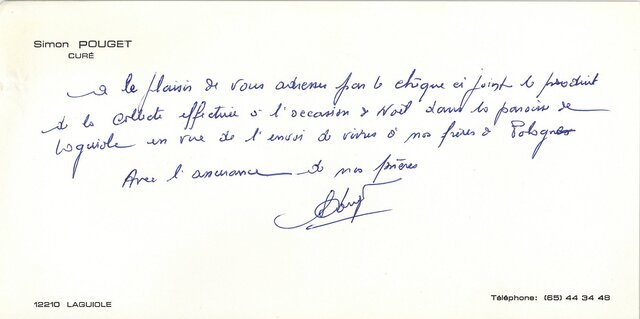 Simon POUGET
CURÉ
a le plaisir de vous adresser par le chèque ci joint le produit
de la collecte effectuée à l'occasion de Noël dans la paroisse de
Laguiole en vue de l'envoi de vivres à nos frères de Pologne
Avec l'assurance de nos prières
12210 LAGUIOLE
Téléphone: (65) 44 34 48